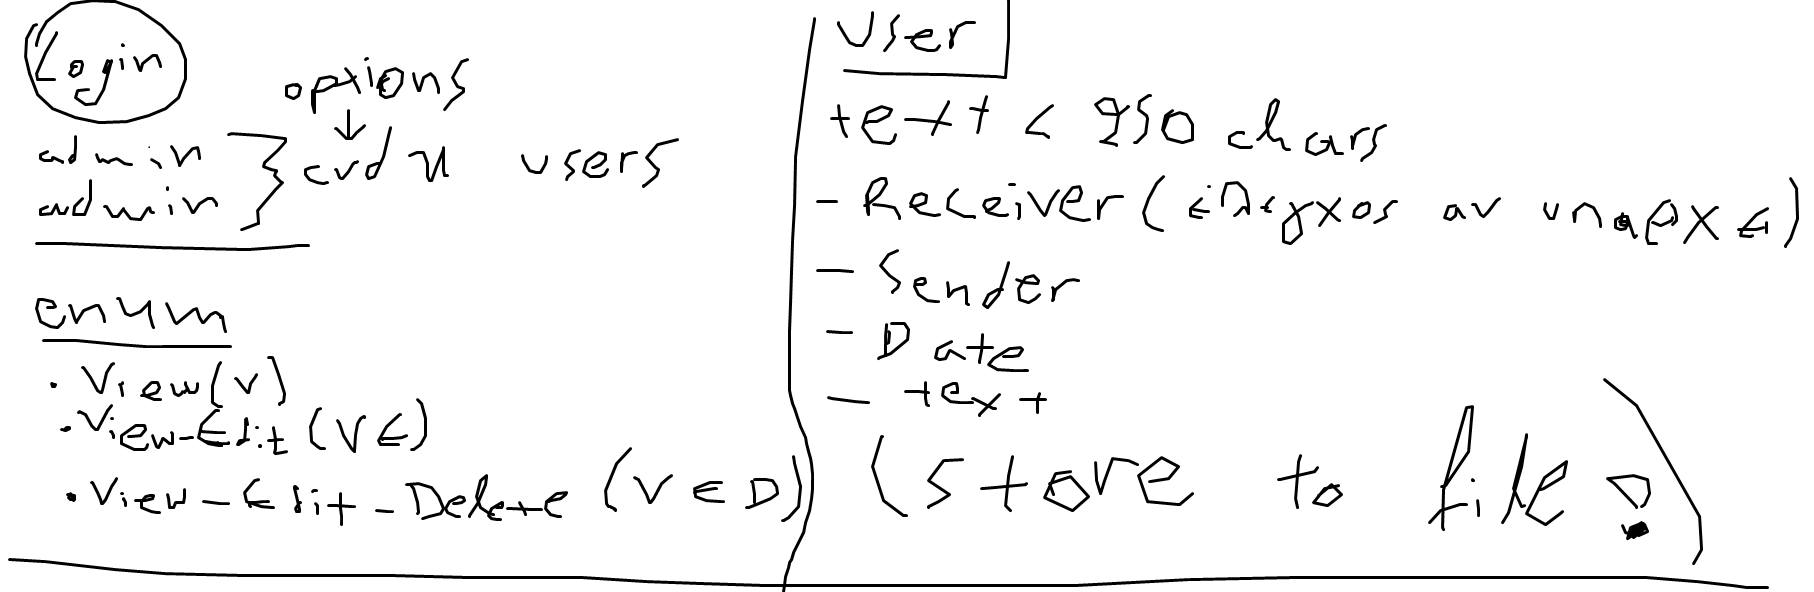 Login
options
admin } crud u users
admin
enum
· View (V)
· View-Edit (VE)
· View-Edit-Delete (VED)
User
text < 250 chars
- Receiver (έλεγχος αν υπαρχει)
- Sender
- Date
- text
(store to file)